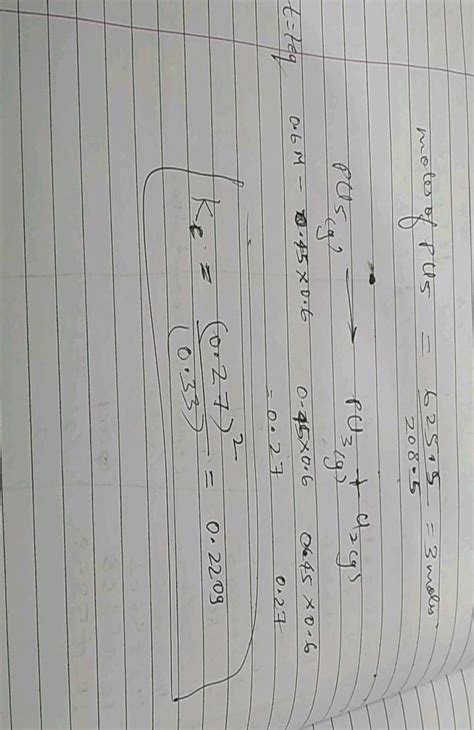 moles of PCl5 = 625.5 / 208.5 = 3 moles
PCl5(g) → PCl3(g) + Cl2(g)
t = teq 0.6 M - 0.45 × 0.6 0.45 × 0.6 0.45 × 0.6
= 0.27 0.27
Kc = (0.27)² / (0.33) = 0.2209